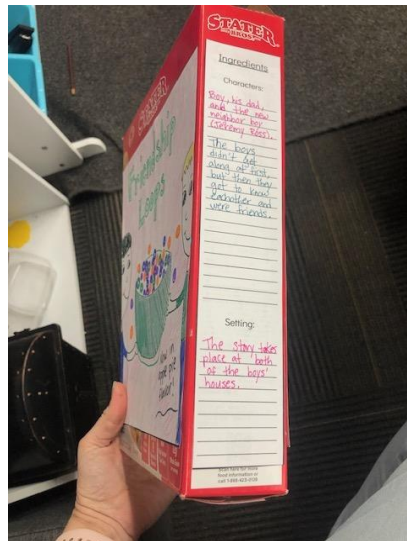 STATER
BROS
Ingredients
Characters:
Boy, his dad,
and the new
neighbor boy
(Jeremy Ross).
The boys
didn't get
along at first,
but then they
got to know
eachother and
were friends.
Setting:
The story takes
place at both
of the boys'
houses.
STATER
Friendship
Loops
now in
apple pie
flavor!
food information or